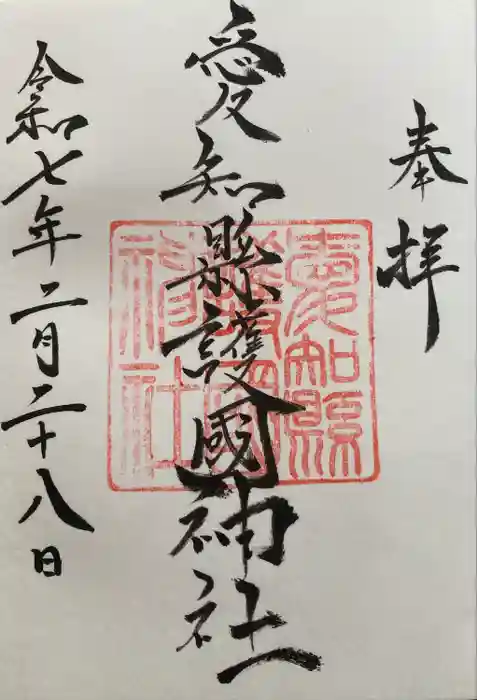 奉拝
愛知縣護國神社
愛知縣
護國
神社
令和七年二月二十八日